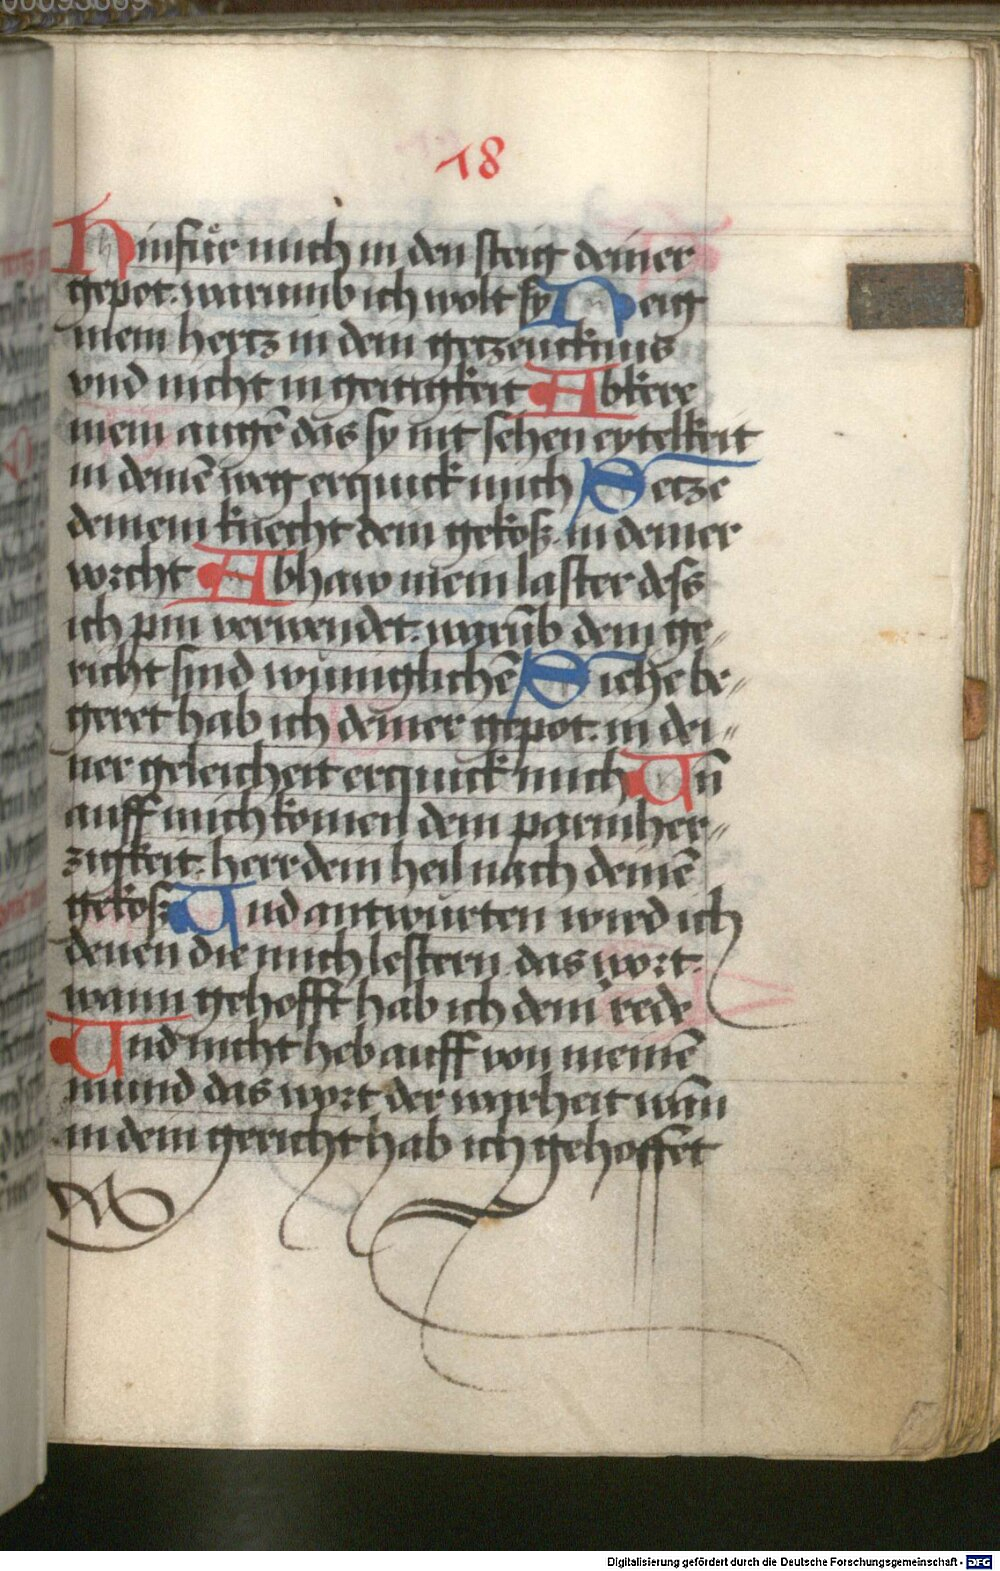 18
Hinfuͤr mich in den steig deiner
gepot. warumb ich wolt sy Neig
mein hertz in dein getzeucknus
vnd nicht in geitigkeit Abkere
mein augē das sy nit sehen eytelkeit
in deinē weg erquick mich Setze
deinem knecht dein gekoͤsz. in deiner
vorcht Abhaw mein laster defs
ich pin verwendet. warūb dein ge„
richt sind wuniglichē Siehe be„
geret hab ich deiner gepot. in dei„
ner geleicheit erquick mich Un̄
auff mich komen dein parmher„
zigkeit. herr dein heil nach deinē
gekoͤsz Und antwurten wird ich
denen die mich lestern. das wort.
wann gehofft hab ich dein rede
Und nicht heb auff von meinē
mund das wort der warheit wān
in dein gericht hab ich gehoffet
Digitalisierung gefördert durch die Deutsche Forschungsgemeinschaft - DFG